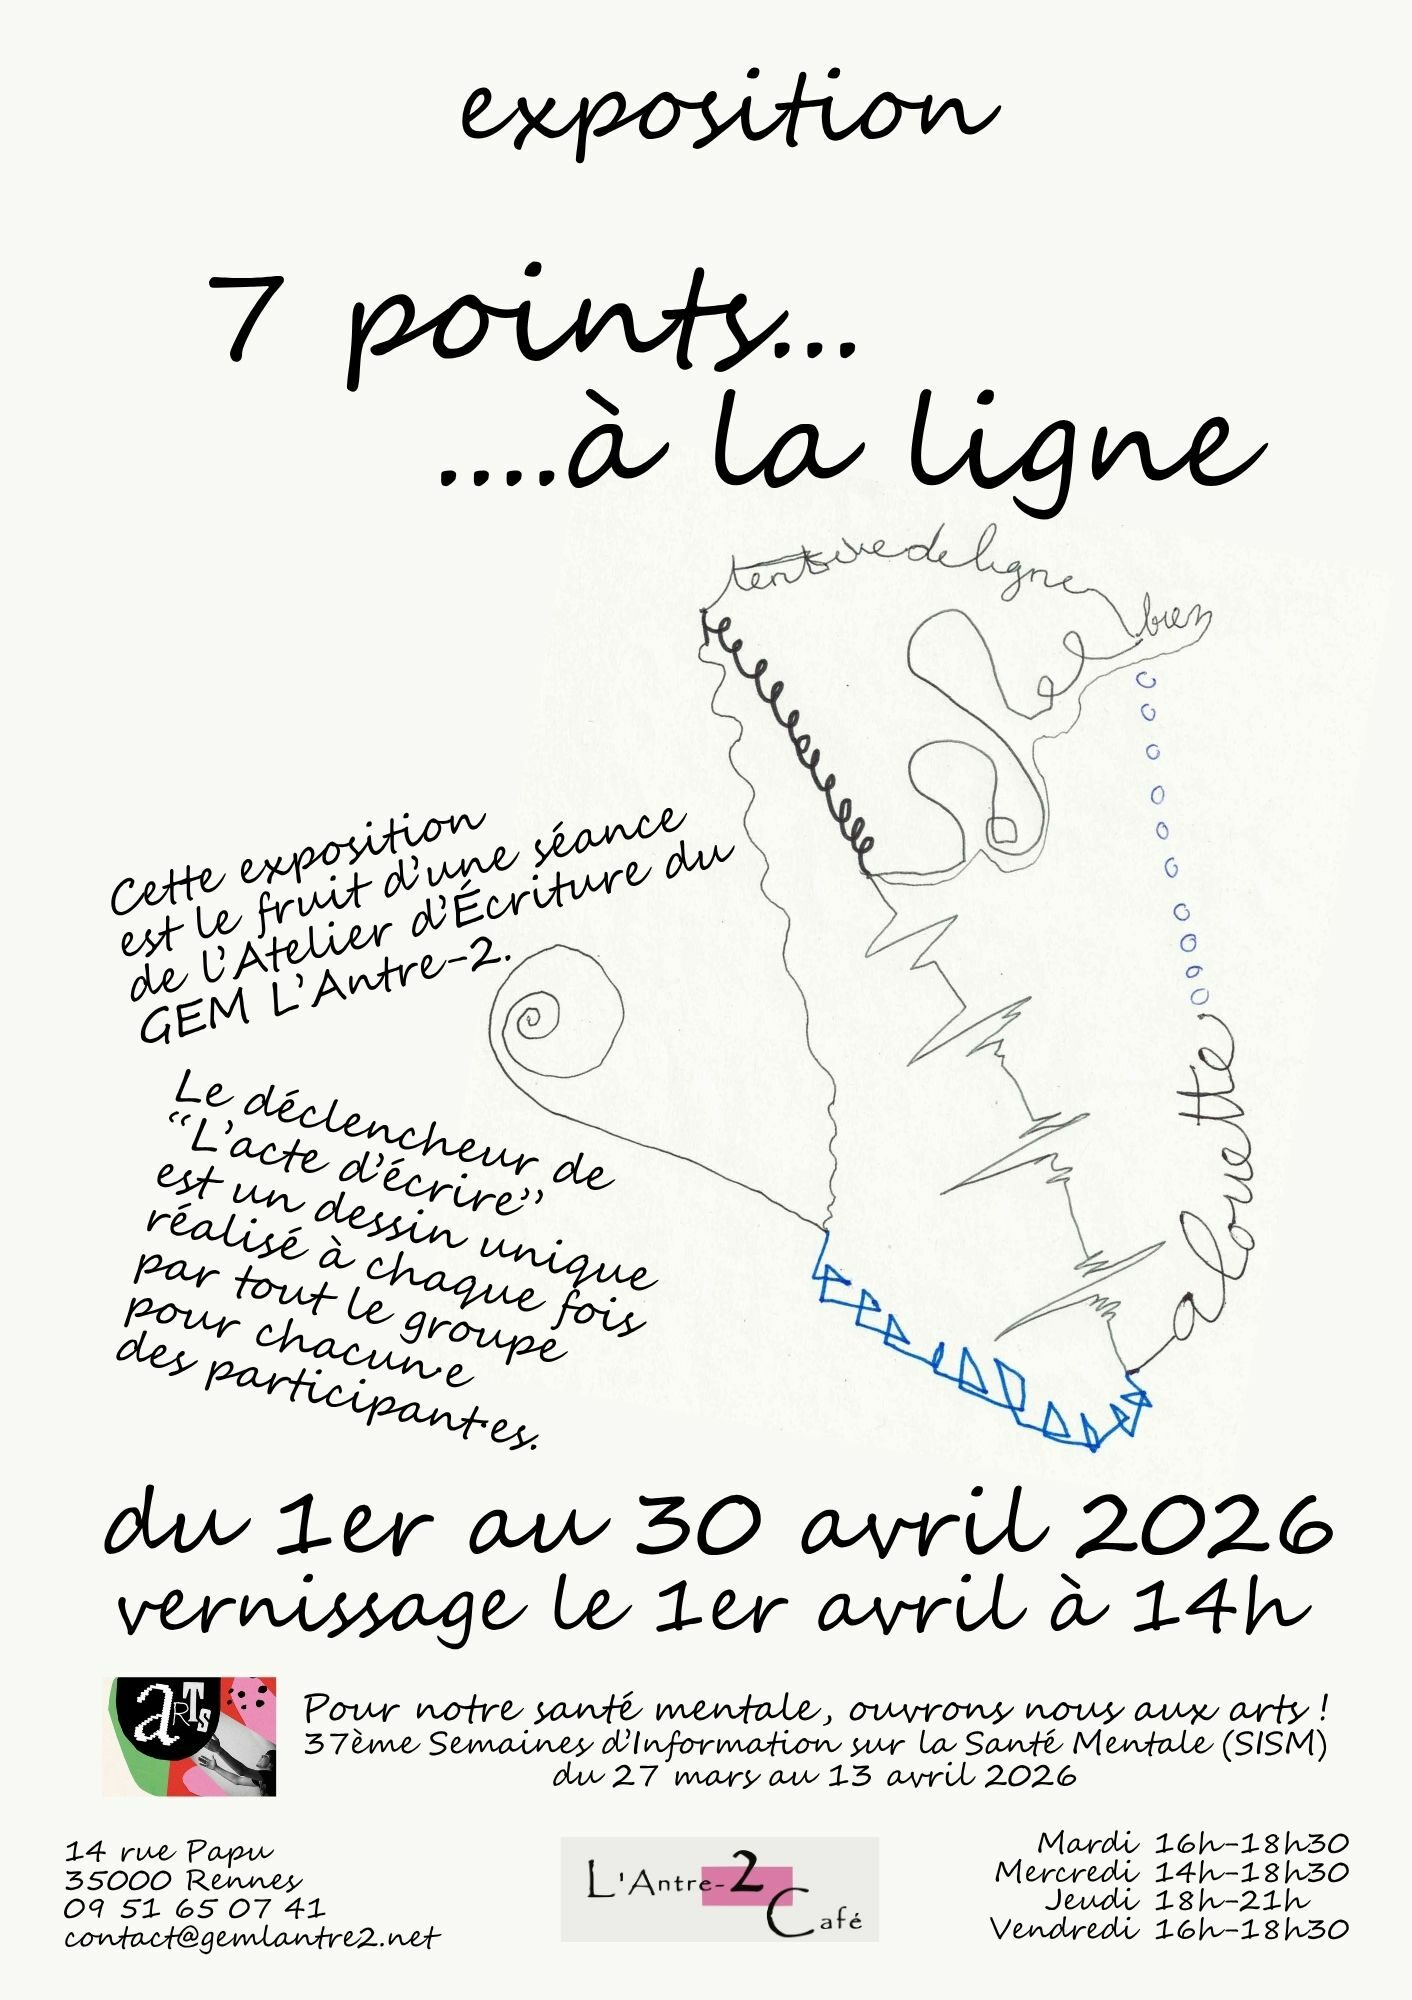 exposition
7 points...
....à la ligne
tentative de ligne
bien
alouette
Cette exposition
est le fruit d'une séance
de l'Atelier d'Écriture du
GEM L'Antre-2.
Le déclencheur de
“L'acte d'écrire”
est un dessin unique
réalisé à chaque fois
par tout le groupe
pour chacun·e
des participant·es.
du 1er au 30 avril 2026
vernissage le 1er avril à 14h
aRTs
Pour notre santé mentale, ouvrons nous aux arts !
37ème Semaines d'Information sur la Santé Mentale (SISM)
du 27 mars au 13 avril 2026
14 rue Papu
35000 Rennes
09 51 65 07 41
contact@gemlantre2.net
L'Antre-2
Café
Mardi 16h-18h30
Mercredi 14h-18h30
Jeudi 18h-21h
Vendredi 16h-18h30